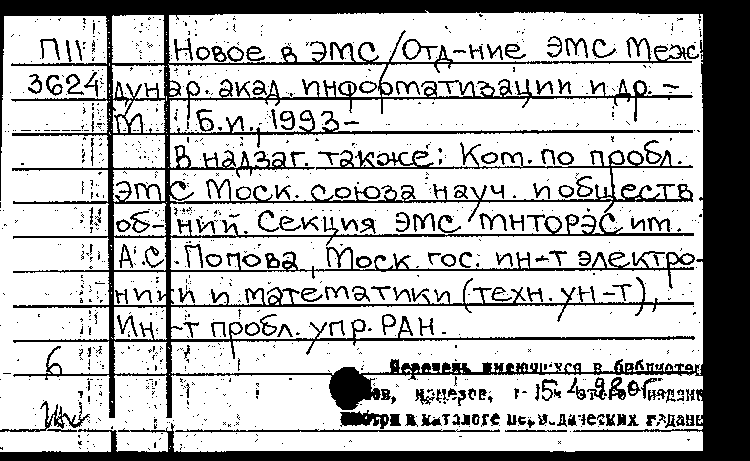 П11 Новое в ЭМС / Отд-ние ЭМС Меж
3624 дунар. акад. информатизации и др. –
М. : Б.и., 1993–
В надзаг. также: Ком. по пробл.
ЭМС Моск. союза науч. и обществ.
об-ний. Секция ЭМС МНТОРЭС им.
А.С. Попова, Моск. гос. ин-т электро-
ники и математики (техн. ун-т),
Ин-т пробл. упр. РАН.
6 Перечень имеющихся в библиотек
ов, номеров, этого издани
смотри в каталоге периодических издани